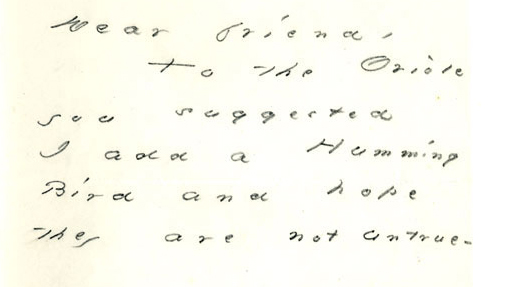 Dear friend,
To the Oriole
you suggested
I add a Humming
Bird and hope
they are not untrue-